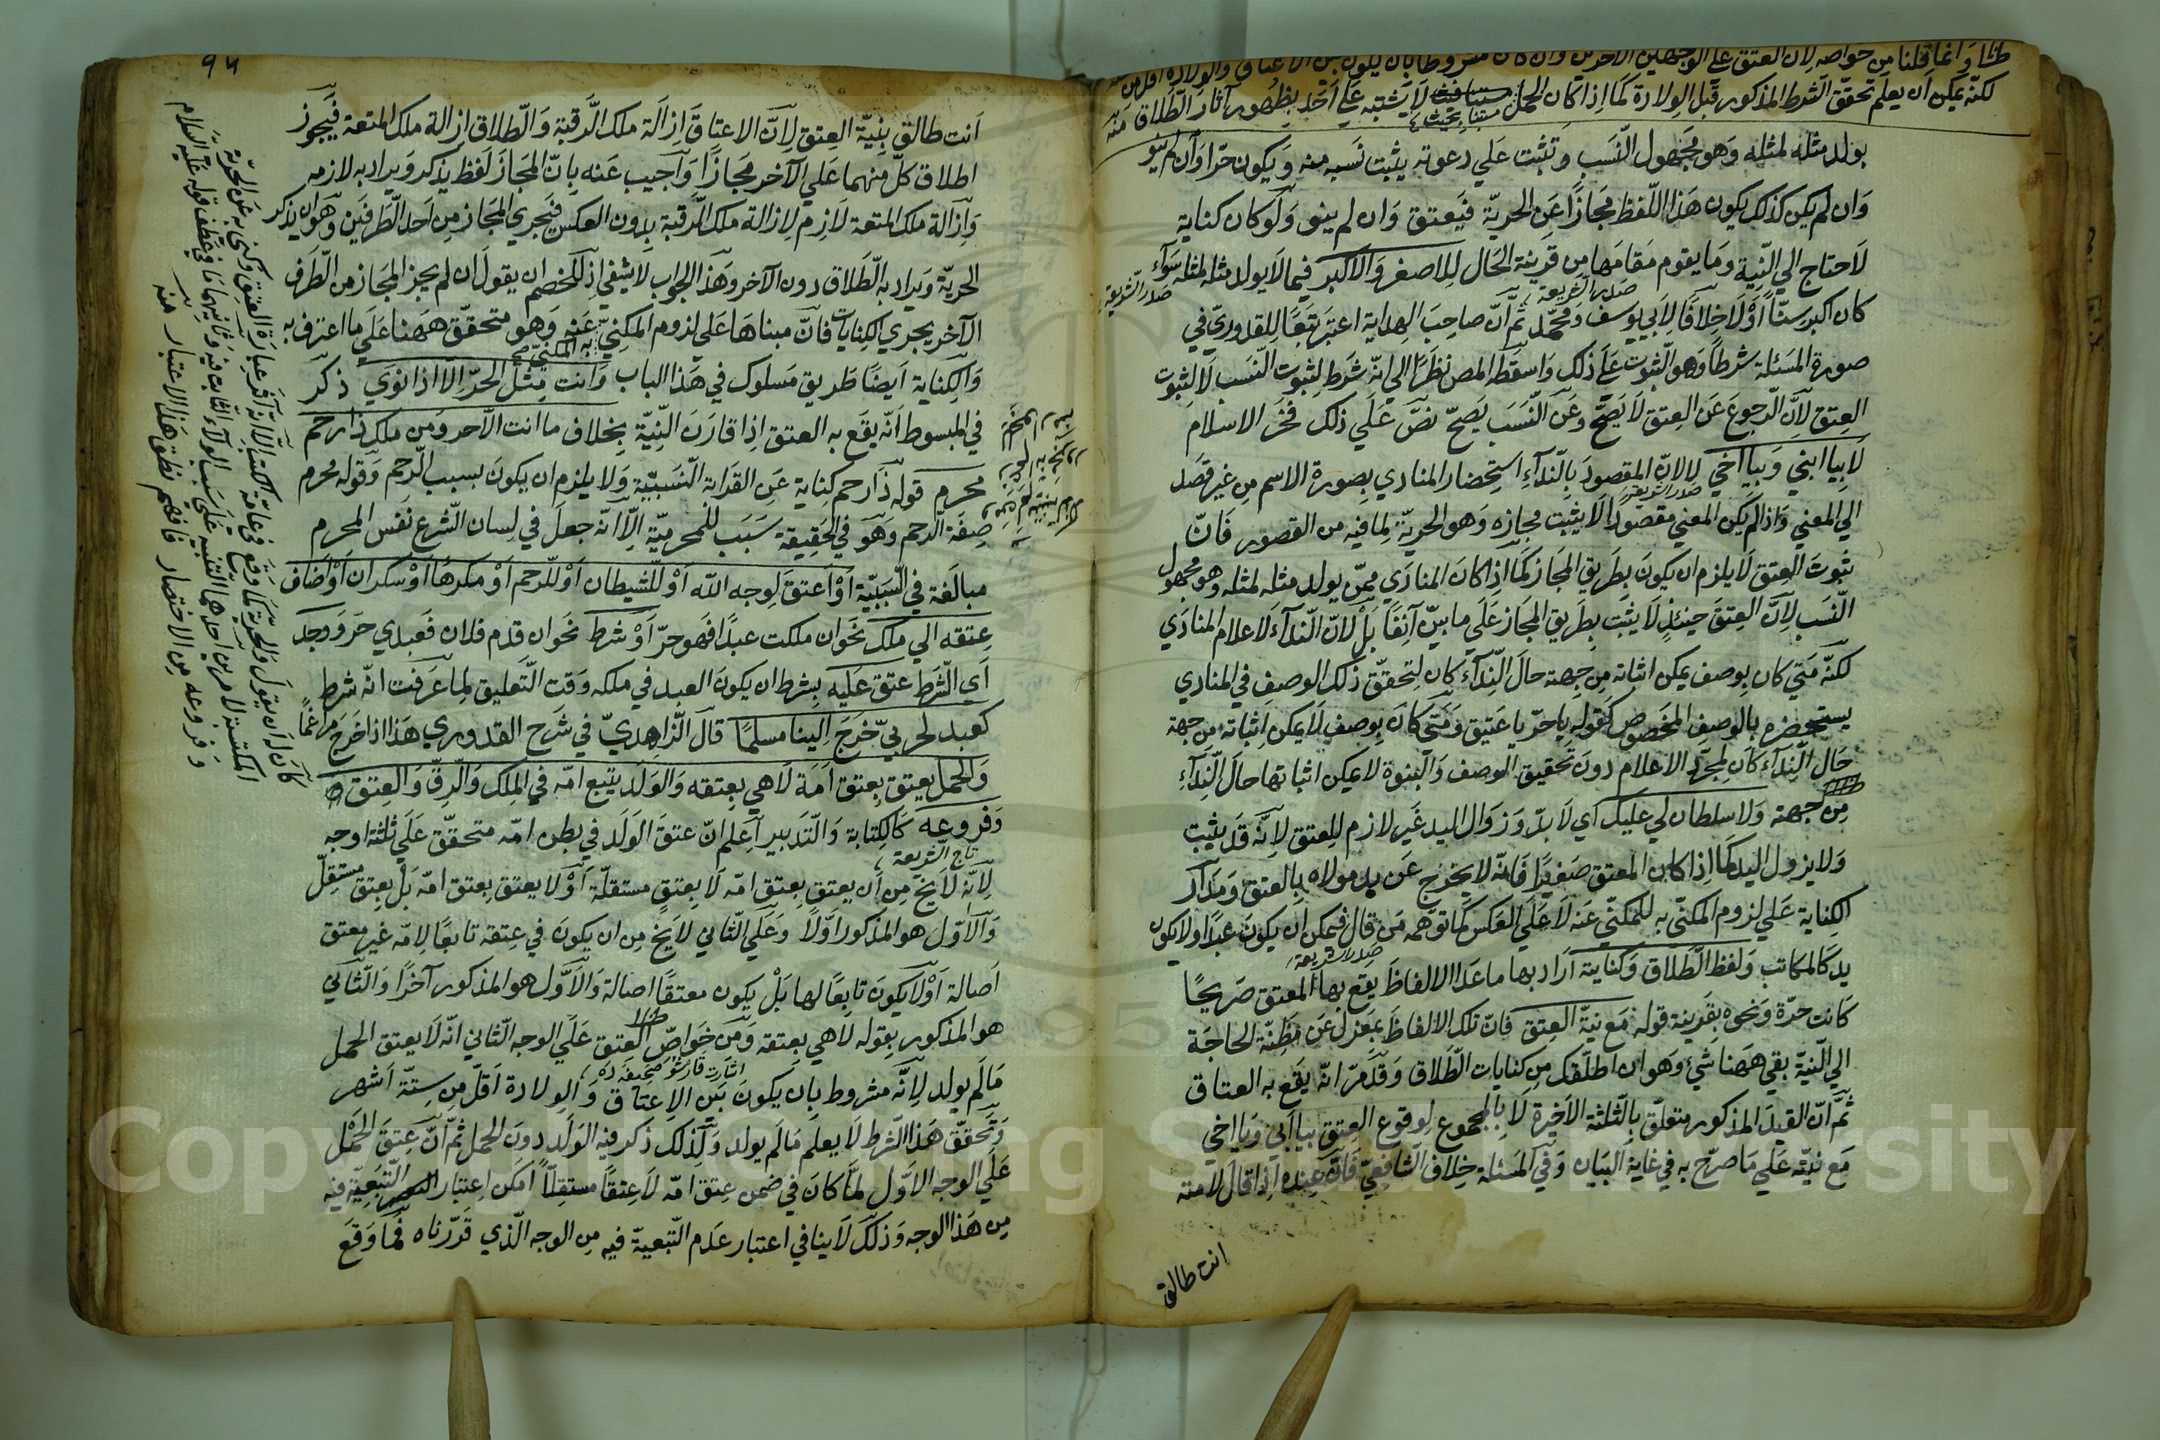 ظنا وانما قلنا من خواصه لان العتق على الوجهين الآخرين وان كان مشروطا بان يكون بين الاعتاق والولادة اقل من ستة
لكنّه يمكن ان يعلم تحقّق الشرط المذكور قبل الولادة كما اذا كان الحمل مبينا بحيث لا يشتبه على احد بظهور آثار الطلاق منه
بولد مثله لمثله وهو مجهول النّسب وتثبت على دعوته يثبت نسبه منه ويكون حرّا وان لم ينو
وان لم يكن كذلك يكون هذا اللّفظ مجازًا عن الحريّة فيعتق وان لم ينو ولو كان كناية
لاحتاج الى النّية وما يقوم مقامها من قرينة الحال للاصغر والاكبر فيما لا يولد مثله لمثله سوآء
صدر الشريعة
كان اكبر سنّا اولا خلافا لابي يوسف ومحمّد ثمّ انّ صاحب الهداية اعتبر تبعًا للقدوري في
صدر الشريعة
صورة المسئلة شرطًا وهو الثبوت على ذلك واسقطه المص نظرًا الى انّه شرط لثبوت النّسب لا لثبوت
العتق لانّ الرجوع عن العتق لا يصحّ وعن النّسب يصحّ نصّ على ذلك فخر الاسلام
لا بيا ابني وبيا اخي لا لانّ المقصود بالنّدآء استحضار المنادي بصورة الاسم من غير قصد
صدر الشريعة
الى المعني واذا لم يكن المعني مقصودا لا يثبت مجازه وهو الحريّة لما فيه من القصور فانّ
ثبوت العتق لا يلزم ان يكون بطريق المجاز كما اذا كان المنادي ممّن يولد مثله لمثله وهو مجهول
النّسب لانّ العتق حينئذٍ لا يثبت بطريق المجاز على ما بيّن آنفًا بل لانّ النّدآء لاعلام المنادي
لكنّه متي كان بوصف يمكن اثباته من جهته حال النّدآء كان لتحقّق ذلك الوصف في المنادي
يستحضره بالوصف المخصوص كقوله يا حرّ يا عتيق ومتي كان بوصف لا يمكن اثباته من جهته
حال النّدآء كان لمجرّد الاعلام دون تحقيق الوصف والبنوة لا يمكن اثباتها حال النّدآء
من جهته ولا سلطان لي عليك اي لا بدّ وزوال اليد غير لازم للعتق لانّه قد يثبت
ولا يزول اليد كما اذا كان المعتق صغيرًا فانّه لا يخرج عن يد مولاه بالعتق ومدار
الكناية على لزوم المكنّي به للمكنّي عنه لا على العكس كما توهّمه من قال فيمكن ان يكون عبدًا ولا يكون
صدر الشريعة
يد كالمكاتب ولفظ الطّلاق وكنايته اراد بها ما عدا الالفاظ يقع بها العتق صريحًا
كانت حرّة ونحوه بقرينة قوله مع نيّة العتق فانّ تلك الالفاظ بمعزل عن مظنّة الحاجة
الى النّيّة بقي ههنا شئ وهو ان اطلقك من كنايات الطّلاق وقد مرّ انّه يقع به العتاق
ثمّ انّ القيد المذكور متعلّق بالثلثة الاخيرة لا بالمجموع لوقوع العتق بيا ابي ويا اخي
مع نيّته على ما صرّح به في غاية البيان وفي المسئلة خلاف الشافعيّ فانّ عنده اذا قال لامته
انت طالق
٩٤
انت طالق بنيّة العتق لانّ الاعتاق ازالة ملك الرّقبة والطّلاق ازالة ملك المتعة فيجوز
اطلاق كلّ منهما على الآخر مجازًا واجيب عنه بانّ المجاز لفظ يذكر ويراد به لازمه
وازالة ملك المتعة لازم لازالة ملك الرّقبة بدون العكس فيجري المجاز من احد الطّرفين وهو ان يذكر
الحريّة ويراد به الطّلاق دون الآخر وهذا الجواب لا يشفي اذ للخصم ان يقول ان لم يجز المجاز من الطّرف
الآخر يجري الكنايات فانّ مبناها على لزوم المكنيّ عنه به المكنّي وهو متحقّق ههنا على ما اعترف به
والكناية ايضًا طريق مسلوك في هذا الباب وانت مثل الحرّ الّا اذا نوي ذكر
في المبسوط انّه يقع به العتق اذا قارن النّيّة بخلاف ما انت الّا حر ومن ملك ذا رحم
محرم قوله ذا رحم كناية عن القرابة النّسبيّة ولا يلزم ان يكون بسبب الرّحم وقوله محرم
صفة الرحم وهو في الحقيقة سبب للمحرميّة الّا انّه جعل في لسان الشّرع نفس المحرم
مبالغة في السّببيّة او اعتق لوجه الله او للشيطان او للرّحم او مكرهًا او سكران او اضاف
عتقه الى ملك نحو ان ملكت عبدًا فهو حرّ او شرط نحو ان قدم فلان فعبدي حر ووجد
اي الشّرط عتق عليه بشرط ان يكون العبد في ملكه وقت التّعليق لما عرفت انّه شرط
كعبد لحربيّ خرج الينا مسلمًا قال الزّاهديّ في شرح القدوري هذا اذا خرج مراغمًا
والحمل يعتق بعتق امّه لا هي بعتقه والولد يتبع امّه في الملك والرّقّ والعتق
وفروعه كالكتابة والتّدبير اعلم انّ عتق الولد في بطن امّه متحقّق على ثلثة اوجه
تاج الشريعة
لانّه لا يخ من ان يعتق بعتق امّه لا بعتق مستقلّة اولا يعتق بعتق امّه بل بعتق مستقلّ
والاوّل هو المذكور اوّلًا وعلى الثّاني لا يخ من ان يكون في عتقه تابعًا لامّه غير معتق
اصالة اولا يكون تابعًا لها بل يكون معتقًا اصالة والاوّل هو المذكور آخرًا والثّاني
هو المذكور بقوله لا هي بعتقه ومن خواصّ العتق على الوجه الثّاني انّه لا يعتق الحمل
ما لم يولد لانّه مشروط بان يكون بين الاعتاق والولادة اقلّ من ستّة اشهر
وتحقّق هذا الشّرط لا يعلم ما لم يولد ولذلك ذكر فيه الولد دون الحمل ثمّ انّ عتق الحمل
على الوجه الاوّل لمّا كان في ضمن عتق امّه لا عتقًا مستقلّا امكن اعتبار التّبعيّة فيه
من هذا الوجه وذلك لا ينافي اعتبار عدم التّبعيّة فيه من الوجه الّذي قرّرناه فما وقع
وفروعه من الاختصار فافهم نطق هذا الاعتبار منه